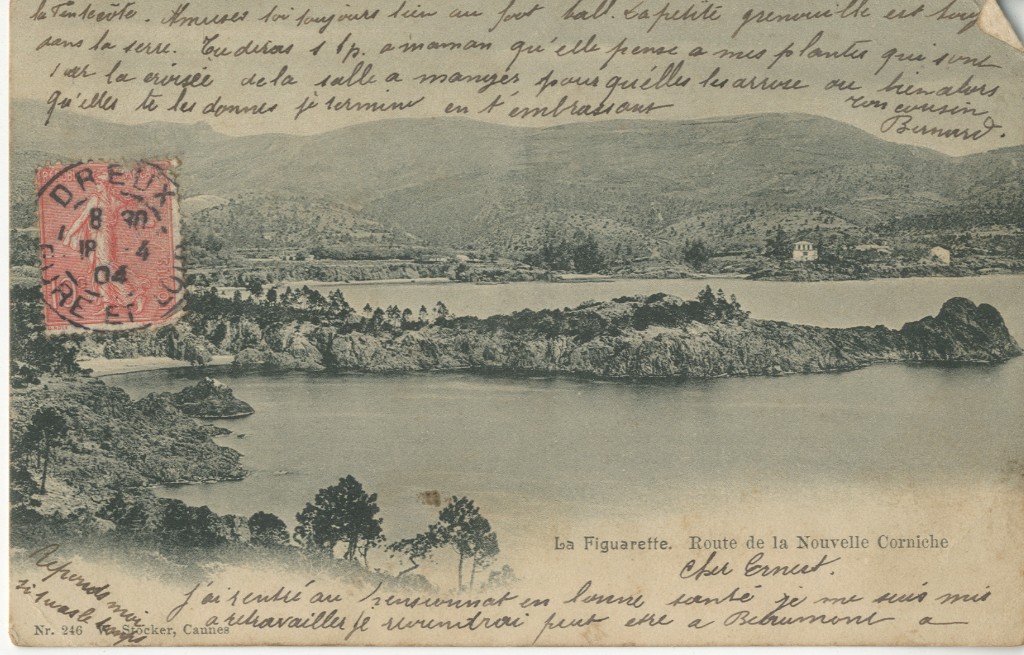 la Pentecôte. Amuses toi toujours bien au foot ball. La petite grenouille est
dans la serre. Tu diras s'il p. a maman qu'elle pense a mes plantes qui sont
sur la croisée de la salle a manger pour qu'elles les arrose ou bien alors
qu'elles te les donnes je termine en t'embrassant
Ton cousin
Bernard.
DREUX
8 30
18 4
04
EURE ET LOIR
La Figuarette. Route de la Nouvelle Corniche
Cher Ernest.
j'ai rentré au pensionnat en bonne santé je me suis mis
a retravailler je reviendrai peut etre a Beaumont a
Reponds moi
si tu as le temps
Nr. 246 Stocker, Cannes